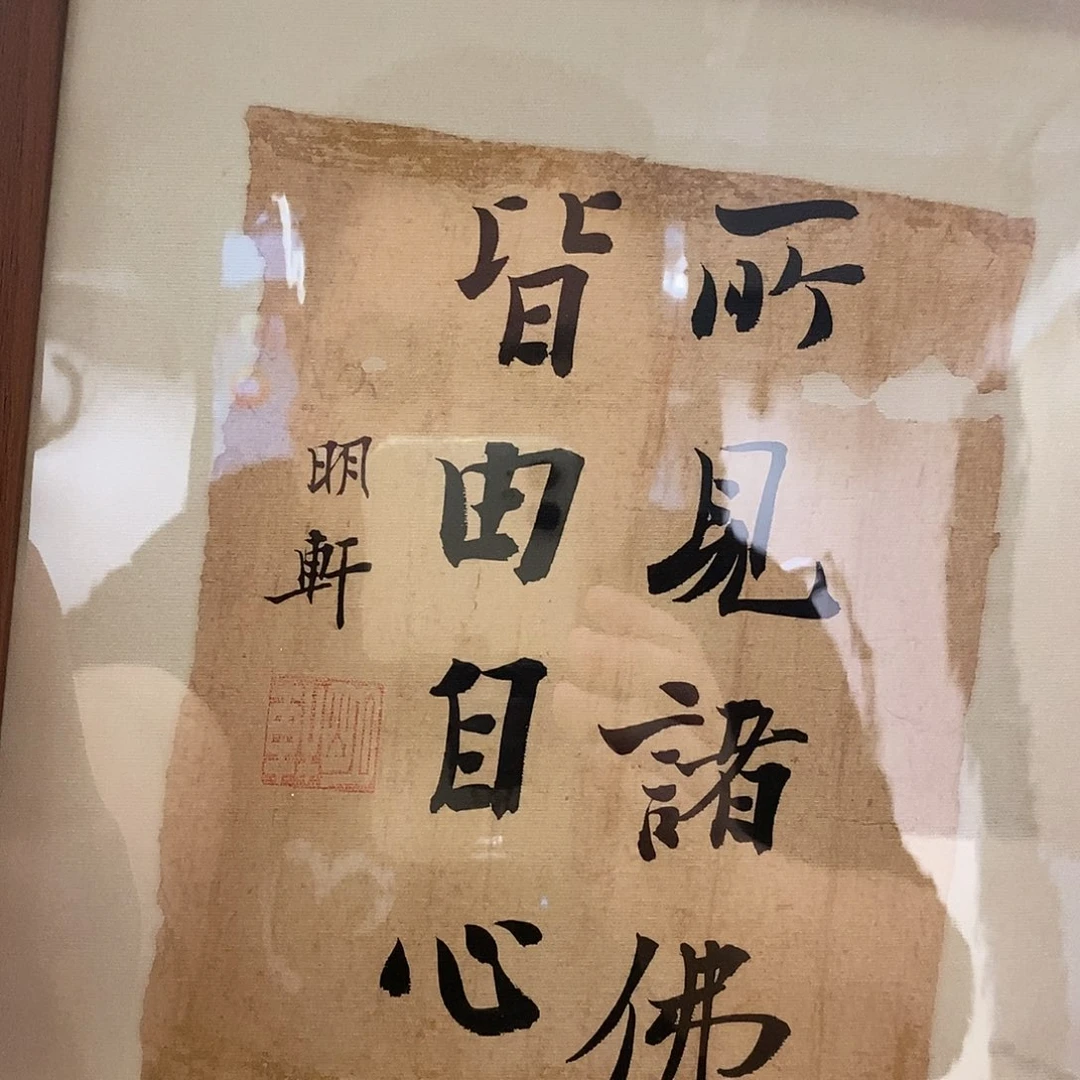 所見諸佛
皆由自心
明軒